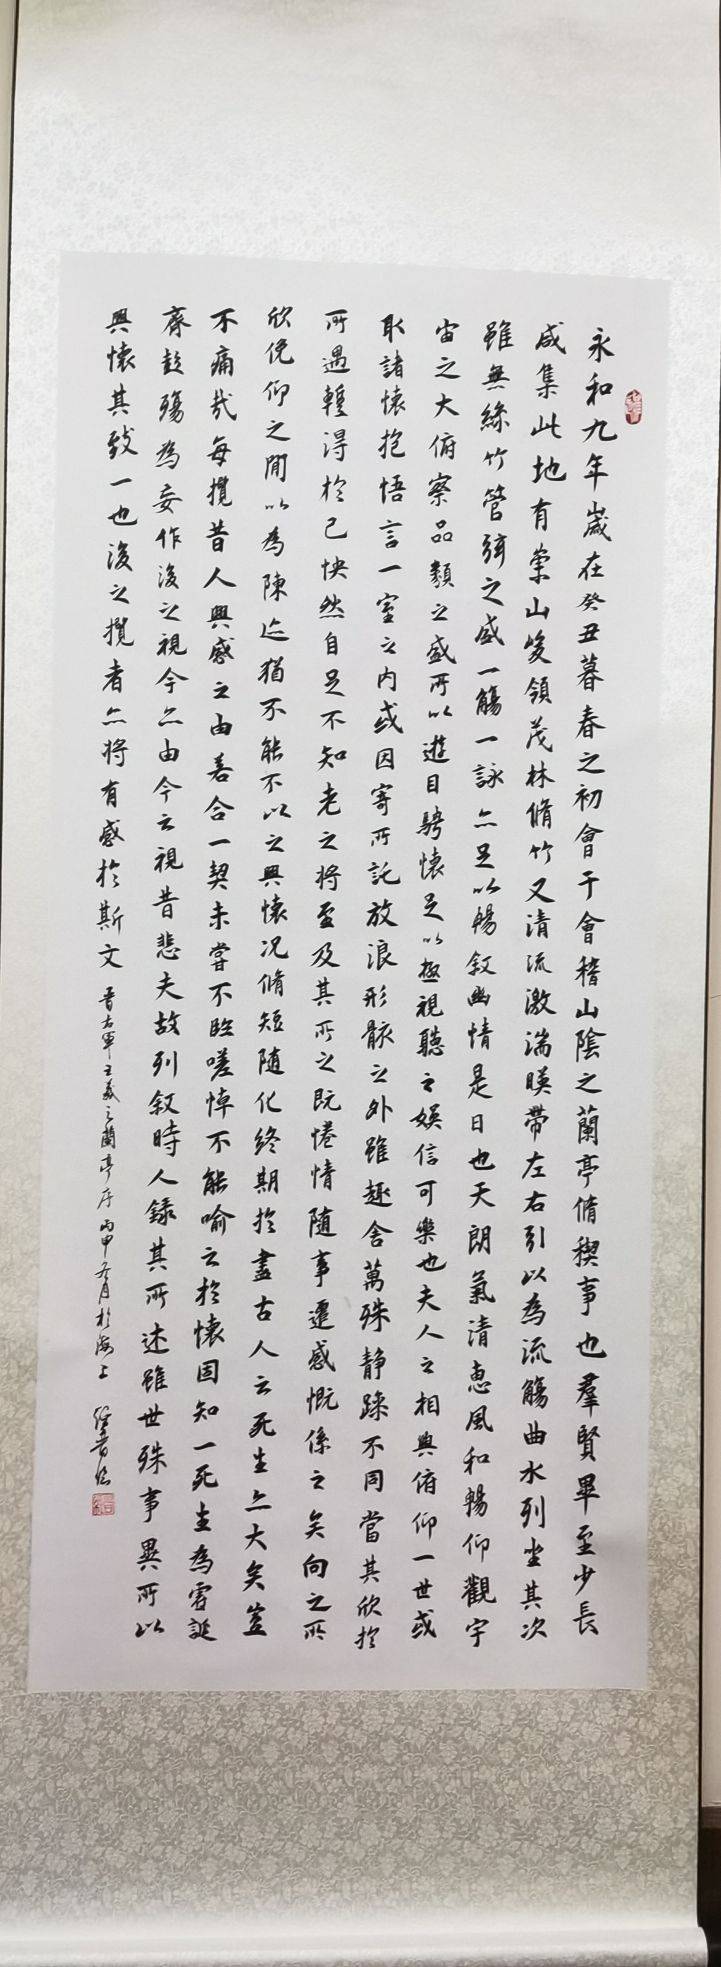 永和九年歲在癸丑暮春之初會于會稽山陰之蘭亭脩稧事也羣賢畢至少長
咸集此地有崇山峻領茂林脩竹又清流激湍暎帶左右引以為流觴曲水列坐其次
雖無絲竹管弦之盛一觴一詠亦足以暢敘幽情是日也天朗氣清惠風和暢仰觀宇
宙之大俯察品類之盛所以遊目騁懷足以極視聽之娛信可樂也夫人之相與俯仰一世或
取諸懷抱悟言一室之內或因寄所託放浪形骸之外雖趣舍萬殊靜躁不同當其欣於
所遇暫得於己怏然自足不知老之將至及其所之既惓情隨事遷感慨係之矣向之所
欣俛仰之間以為陳迹猶不能不以之興懷況脩短隨化終期於盡古人云死生亦大矣豈
不痛哉每攬昔人興感之由若合一契未嘗不臨嗟悼不能喻之於懷固知一死生為虛誕
齊彭殤為妄作後之視今亦由今之視昔悲夫故列敘時人錄其所述雖世殊事異所以
興懷其致一也後之攬者亦將有感於斯文 晋右軍王羲之蘭亭序 丙申冬月於海上